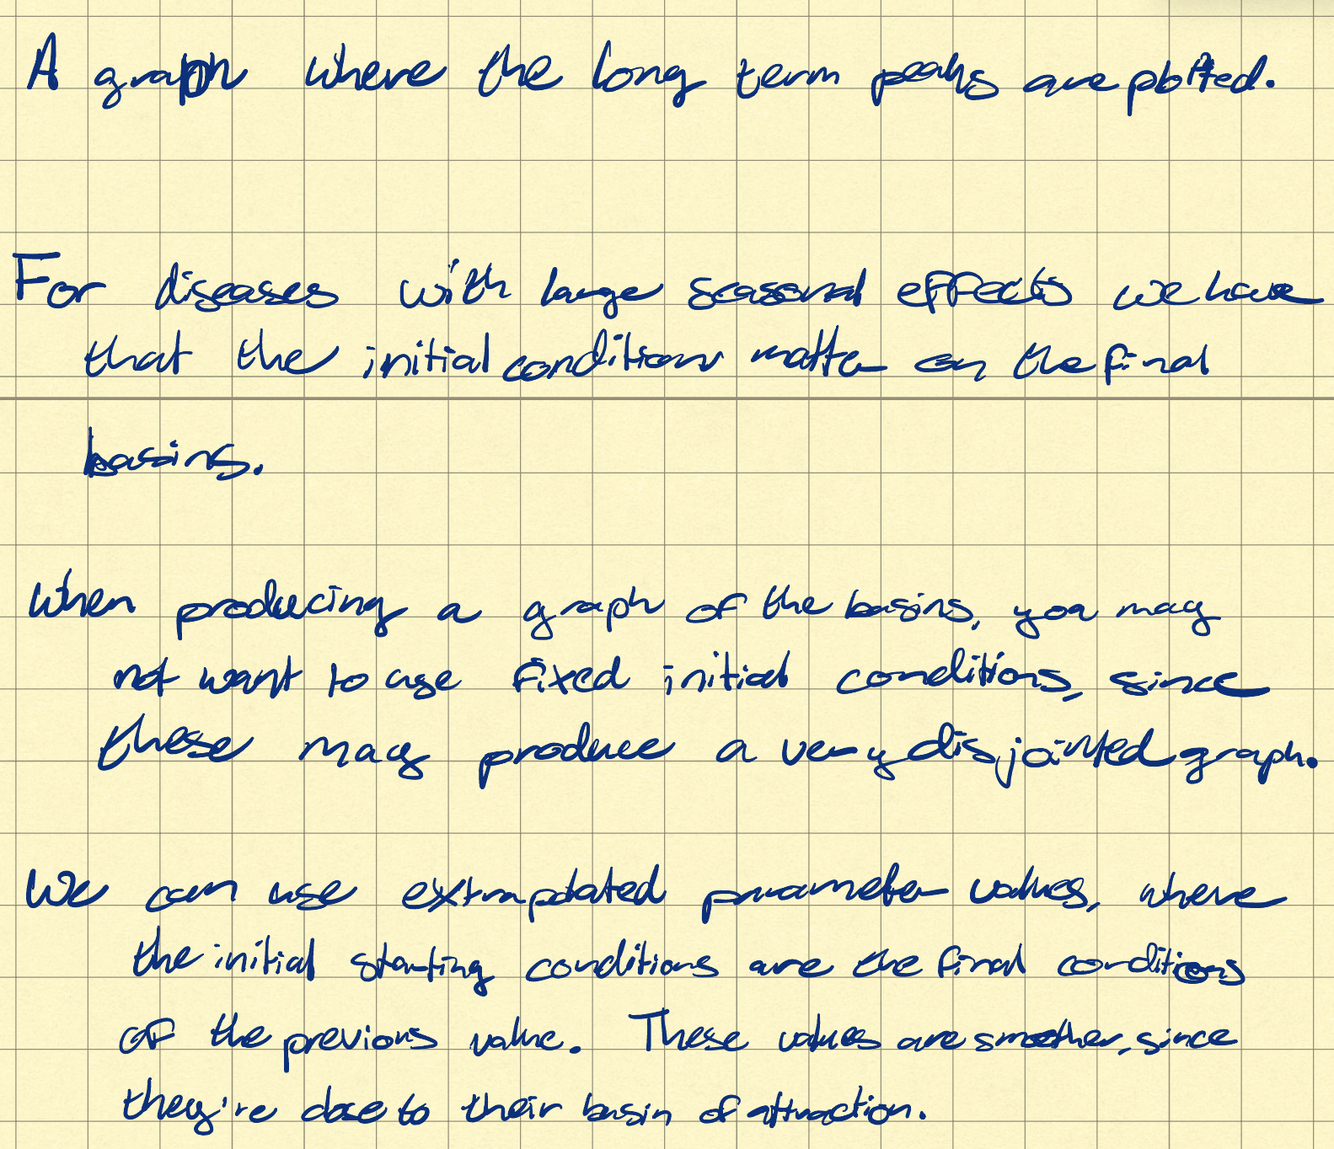 A graph where the long term peaks are plotted.
For diseases with large seasonal effects we have
that the initial conditions matter on the final
basins.
When producing a graph of the basins, you may
not want to use fixed initial conditions, since
these may produce a very disjointed graph.
We can use extrapolated parameter values, where
the initial starting conditions are the final conditions
of the previous value. These values are smoother, since
they're close to their basin of attraction.